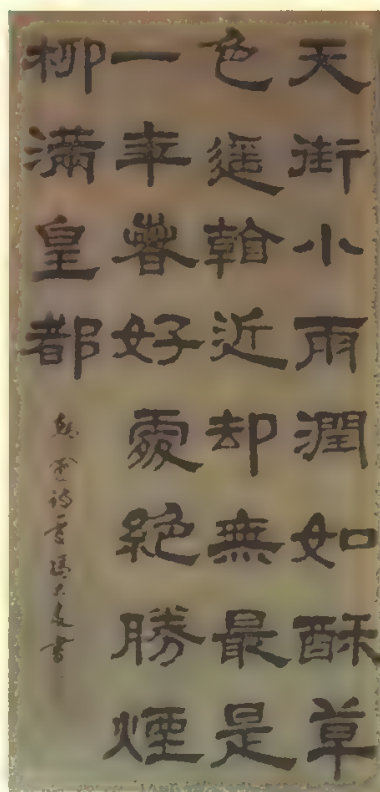 天街小雨潤如酥草
色遥看近却無最是
一年春好處絕勝煙
柳滿皇都
詩書